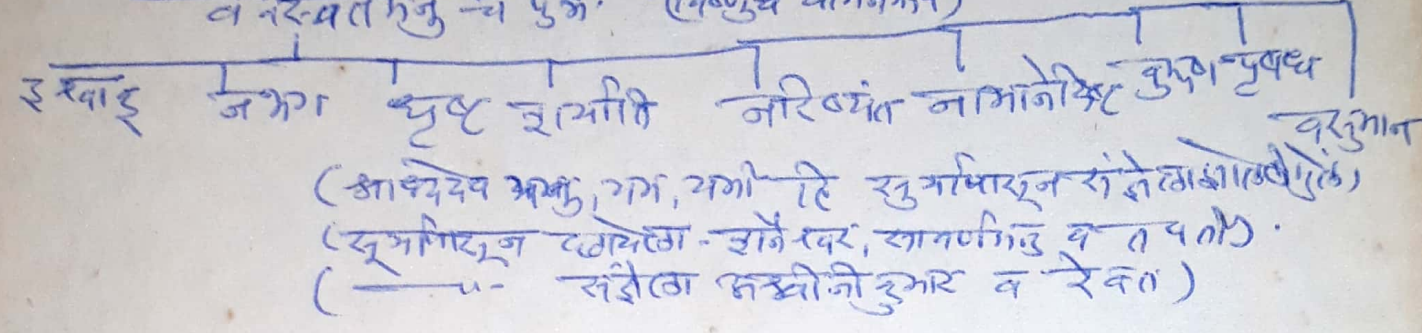 वैवस्वत मनु चे पुत्र. (विष्णुपुराण
इक्ष्वाकु नभग धृष्ट शर्याति नरिष्यंत नाभानेदिष्ट पृषध्र
वसुमान
(श्राध्ददेव मनु, यम, यमी हि सुर्यापासून संज्ञेला झालेली मुले)
(सूर्यापासून छायेला - शनैश्वर, सावर्णमनु व तपती).
( —〃- संज्ञेला अश्वीनीकुमार व रेवंत)